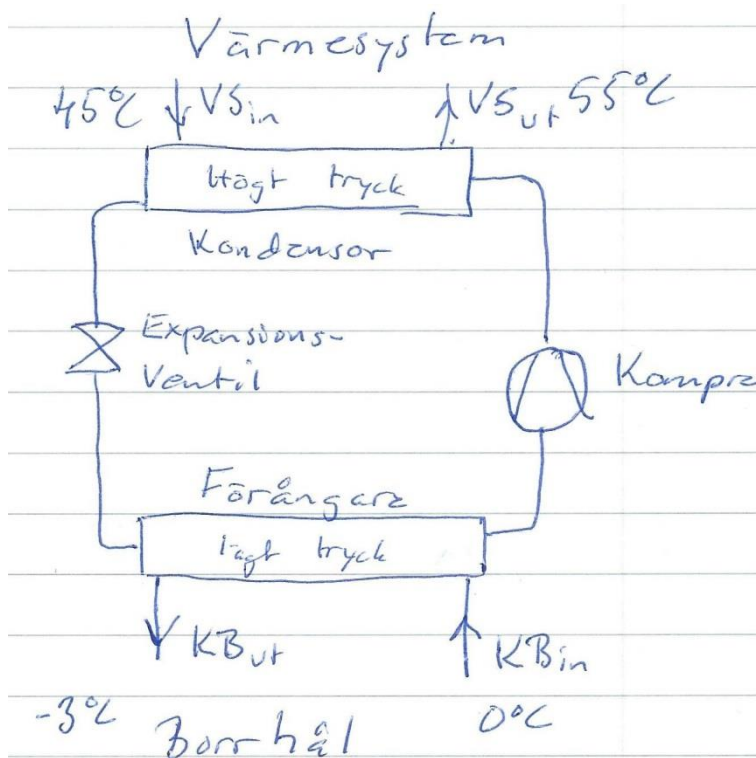 Värmesystem
45°C VS in VS ut 55°C
Högt tryck
Kondensor
Expansions-
Ventil
Kompre
Förångare
Lågt tryck
KB ut KB in
-3°C 0°C
Borrhål